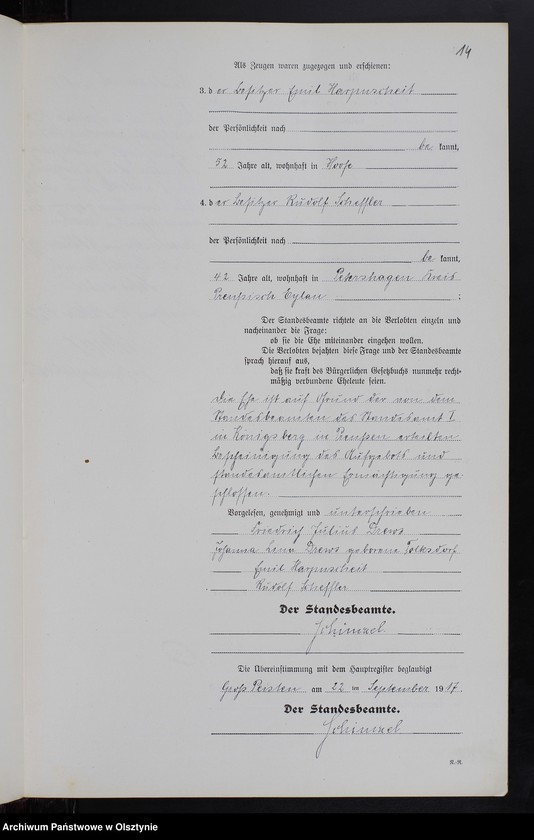 14
Als Zeugen waren zugezogen und erschienen:
3. der Besitzer Emil Harpuscheit
der Persönlichkeit nach
be kannt,
52 Jahre alt, wohnhaft in
4. der Besitzer Rudolf Scheffler
der Persönlichkeit nach
be kannt,
42 Jahre alt, wohnhaft in Petershagen Kreis
Preußisch Eylau ;
Der Standesbeamte richtete an die Verlobten einzeln und
nacheinander die Frage:
ob sie die Ehe miteinander eingehen wollen.
Die Verlobten bejahten diese Frage und der Standesbeamte
sprach hierauf aus,
daß sie kraft des Bürgerlichen Gesetzbuchs nunmehr recht-
mäßig verbundene Eheleute seien.
Die Ehe ist auf Grund der von dem
Standesbeamten des Standesamt I
in Königsberg in Preußen erteilten
Bescheinigung des Aufgebots und
standesamtlichen Ermächtigung ge
schlossen.
Vorgelesen, genehmigt und unterschrieben
Friedrich Julius Drews
Johanna Lena Drews geborene Tolksdorf
Emil Harpuscheit
Rudolf Scheffler
Der Standesbeamte.
Schimmel
Die Übereinstimmung mit dem Hauptregister beglaubigt
Groß Peisten am 22 ten September 1917.
Der Standesbeamte.
Schimmel
R.-R.
Archiwum Państwowe w Olsztynie